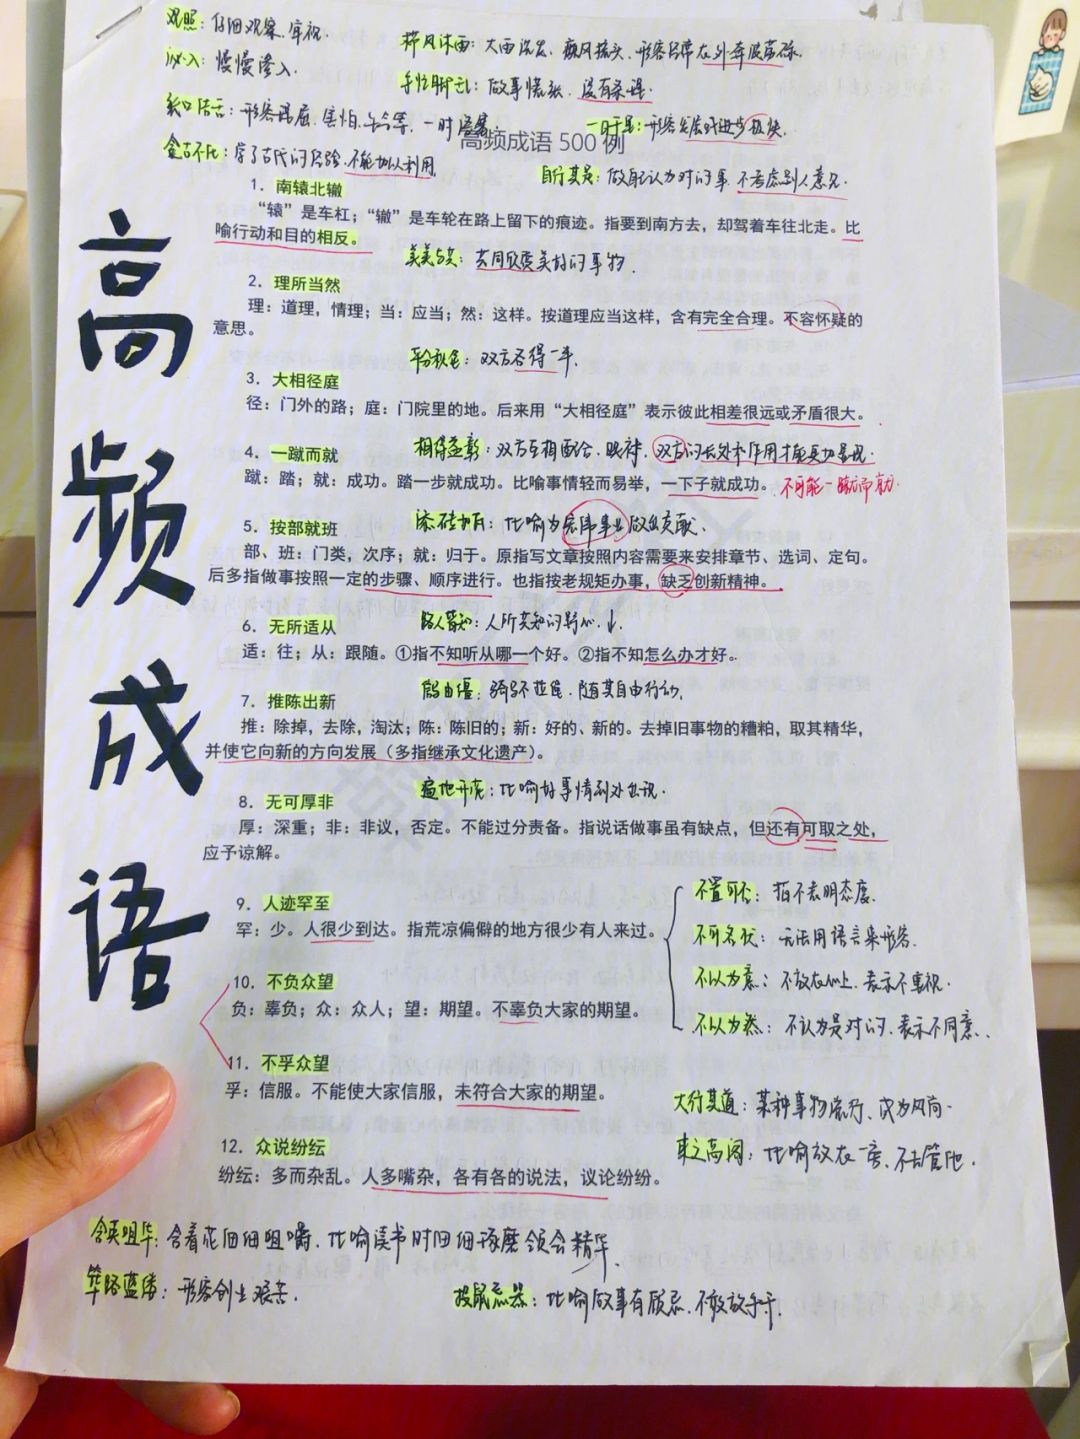 观照：仔细观察、审视.
栉风沐雨：大雨洗发，疾风梳头，形容经常在外奔波劳碌.
沁入：慢慢渗入.
手忙脚乱：做事慌张、没有条理.
形容理屈、害怕
一时
形容发展或进步极快.
高频成语500例
食古不化：学了古代的经验，不能加以利用
自行其是：做自己认为对的事，不考虑别人意见.
1. 南辕北辙
“辕”是车杠；“辙”是车轮在路上留下的痕迹。指要到南方去，却驾着车往北走。比
喻行动和目的相反。
美美与共：共同欣赏美好的事物.
2. 理所当然
理：道理，情理；当：应当；然：这样。按道理应当这样，含有完全合理。不容怀疑的
意思。
平分秋色：双方各得一半.
3. 大相径庭
径：门外的路；庭：门院里的地。后来用“大相径庭”表示彼此相差很远或矛盾很大。
4. 一蹴而就
相得益彰：双方互相配合、映衬，双方的长处和作用才能更加显现.
蹴：踏；就：成功。踏一步就成功。比喻事情轻而易举，一下子就成功。
不可能一蹴而
5. 按部就班
添砖加瓦：比喻为宏伟事业做点贡献.
部、班：门类，次序；就：归于。原指写文章按照内容需要来安排章节、选词、定句。
后多指做事按照一定的步骤、顺序进行。也指按老规矩办事，缺乏创新精神。
6. 无所适从
路人皆知：人所共知的野心.↓
适：往；从：跟随。①指不知听从哪一个好。②指不知怎么办才好。
7. 推陈出新
信由缰：骑马不拉缰、随其自由行动.
推：除掉，去除，淘汰；陈：陈旧的；新：好的、新的。去掉旧事物的糟粕，取其精华，
并使它向新的方向发展（多指继承文化遗产）。
遍地开花：比喻好事情到处出现.
8. 无可厚非
厚：深重；非：非议，否定。不能过分责备。指说话做事虽有缺点，但还有可取之处，
应予谅解。
9. 人迹罕至
罕：少。人很少到达。指荒凉偏僻的地方很少有人来过。
不置可否：指不表明态度.
不可名状：无法用语言来形容.
不以为意：不放在心上，表示不重视.
不以为然：不认为是对的，表示不同意.
10. 不负众望
负：辜负；众：众人；望：期望。不辜负大家的期望。
11. 不孚众望
孚：信服。不能使大家信服，未符合大家的期望。
大行其道：某种事物流行、成为风尚.
12. 众说纷纭
束之高阁：比喻放在一旁、不去管他.
纷纭：多而杂乱。人多嘴杂，各有各的说法，议论纷纷。
含英咀华：含着花细细咀嚼，比喻读书时仔细琢磨领会精华.
筚路蓝缕：形容创业艰苦.
投鼠忌器：比喻做事有顾忌，不敢放手干.
高
频
成
语